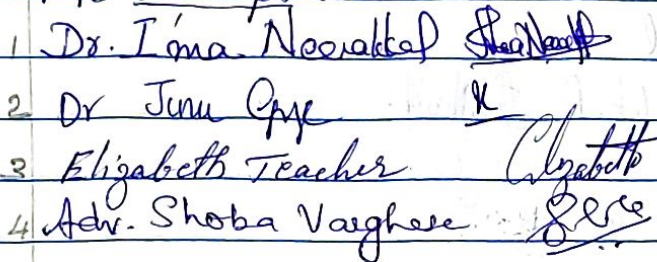 1 Dr. Ima Neerakkal
2 Dr Junu
3 Elizabeth Teacher Elizabeth
4 Adv. Shoba Varghese